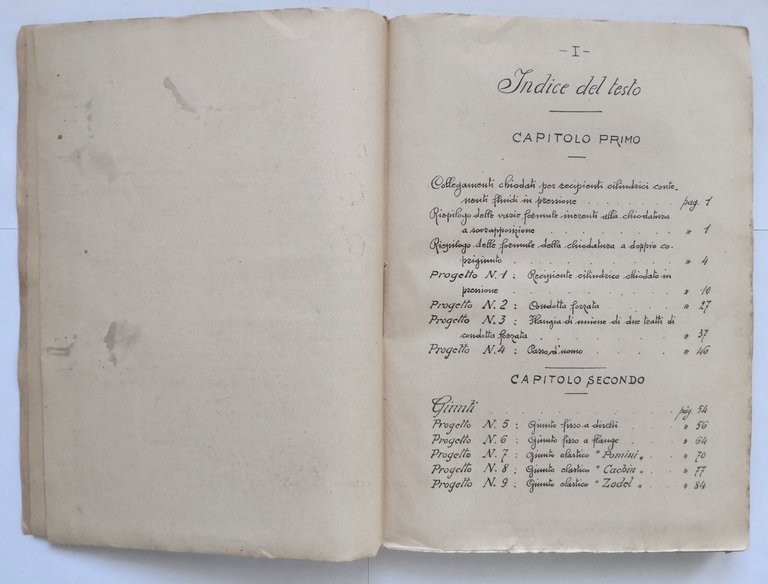 - I -
Indice del testo
CAPITOLO PRIMO
Collegamenti chiodati per recipienti cilindrici conte-
nenti fluidi in pressione . . . . . . . pag. 1
Riepilogo delle varie formule inerenti alla chiodatura
a sovrapposizione . . . . . . . . . " 1
Riepilogo delle formule della chiodatura a doppio co-
prigiunto . . . . . . . . . . . " 4
Progetto N. 1 : Recipiente cilindrico chiodato in
pressione . . . . . . . . . . . " 10
Progetto N. 2 : Condotta forzata . . . . . " 27
Progetto N. 3 : Flangia di unione di due tratti di
condotta forzata . . . . . . . . . " 37
Progetto N. 4 : Passo d'uomo . . . . . . " 46
CAPITOLO SECONDO
Giunti . . . . . . . . . . . . pag. 54
Progetto N. 5 : Giunto fisso a dischi . . . . " 56
Progetto N. 6 : Giunto fisso a flange . . . . " 64
Progetto N. 7 : Giunto elastico " Pomini " . . . " 70
Progetto N. 8 : Giunto elastico " Cachin " . . . " 77
Progetto N. 9 : Giunto elastico " Zodel " . . . " 84